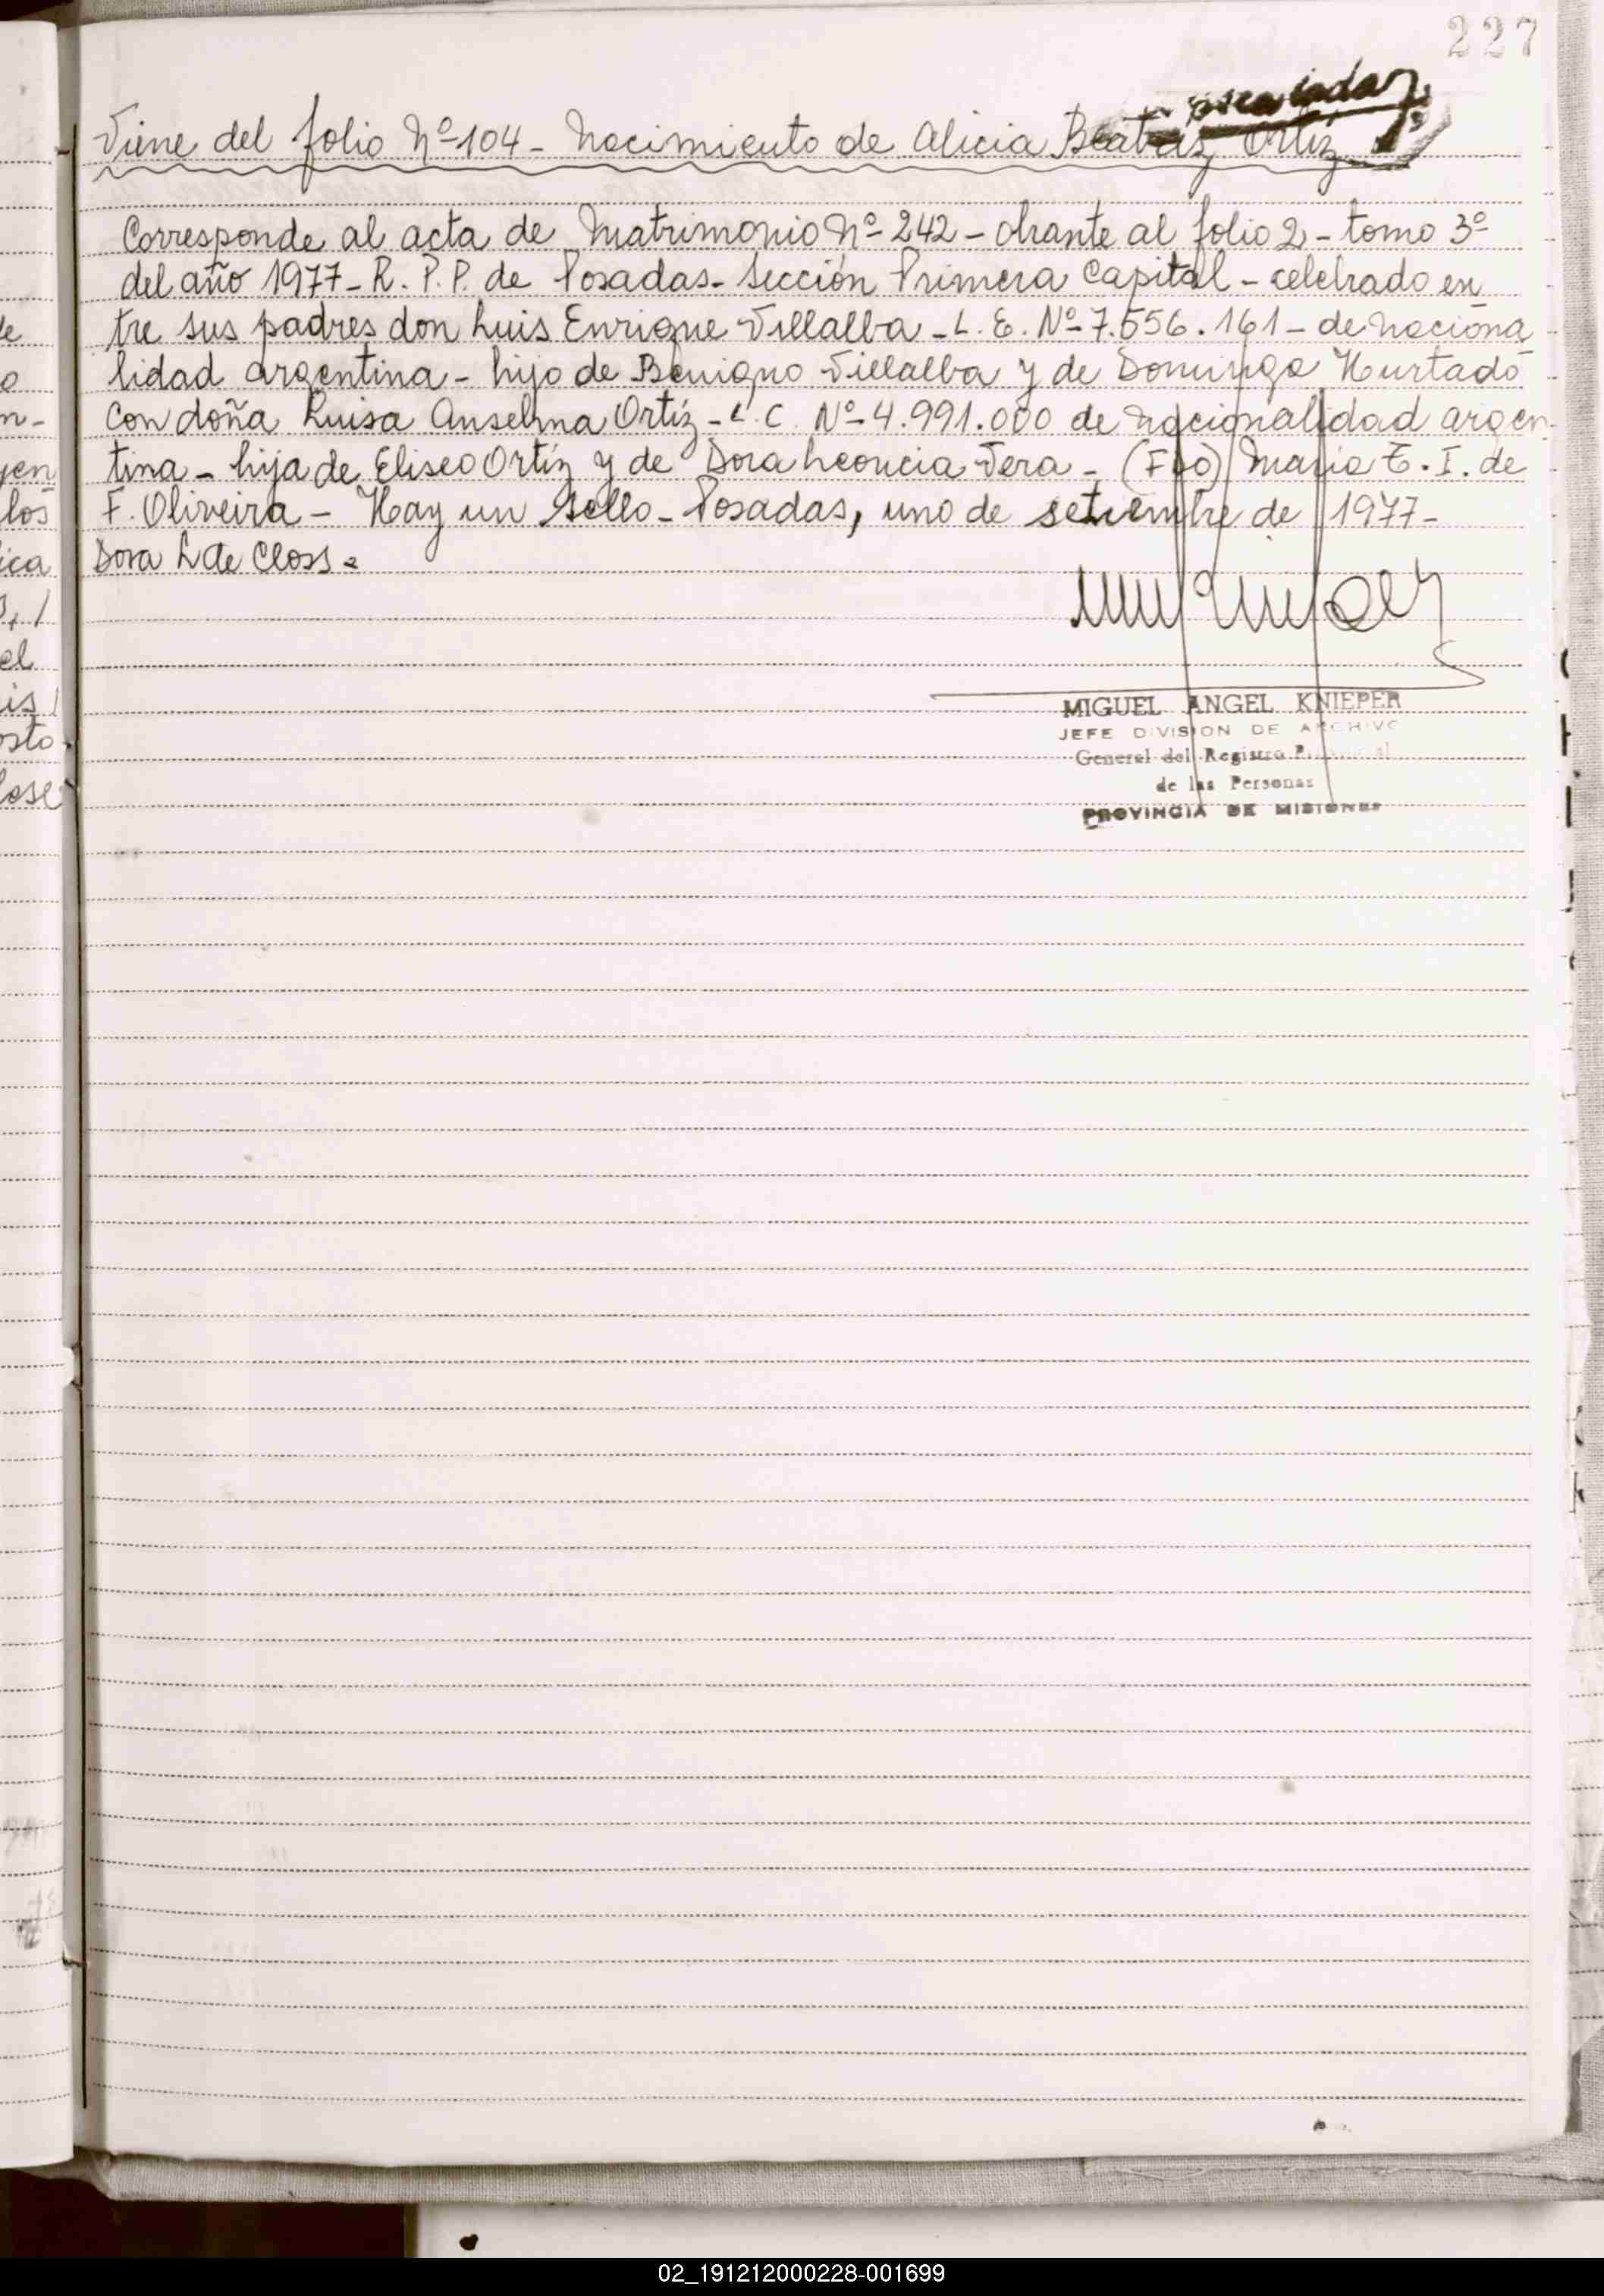 227
Viene del folio Nº 104 - Nacimiento de Alicia Beatriz Ortíz
Corresponde al acta de Matrimonio Nº 242 - obrante al folio 2 - tomo 3º
del año 1977 - R. P. P. de Posadas - Sección Primera Capital - celebrado en
tre sus padres don Luis Enrique Villalba - L. E. Nº 7.556.161 - de naciona
lidad argentina - hijo de Benigno Villalba y de Dominga Hurtado
con doña Luisa Anselma Ortíz - L. C. Nº 4.991.000 de nacionalidad argen-
tina - hija de Eliseo Ortíz y de Dora Leoncia Vera - (Fdo) María E. I. de
F. Oliveira - Hay un sello - Posadas, uno de setiembre de 1977 -
Dora L de Closs.
MIGUEL ANGEL KNIEPER
JEFE DIVISION DE ARCHIVO
General del Registro Provincial
de las Personas
PROVINCIA DE MISIONES
02_191212000228-001699